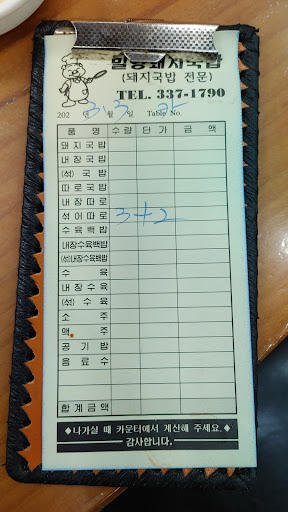 돼지국밥
(돼지국밥 전문)
TEL. 337-1790
202 년 3월 3일 Table No.
품 명 수량 단가 금 액
돼지국밥
내장국밥
(섞) 국 밥
따로국밥
내장따로
섞어따로 3+2
수육백밥
내장수육백밥
(섞)내장수육백밥
수 육
내장수육
(섞) 수 육
소 주
맥 주
공 기 밥
음 료 수
합계금액
◆나가실 때 카운터에서 계산해 주세요.◆
감사합니다.